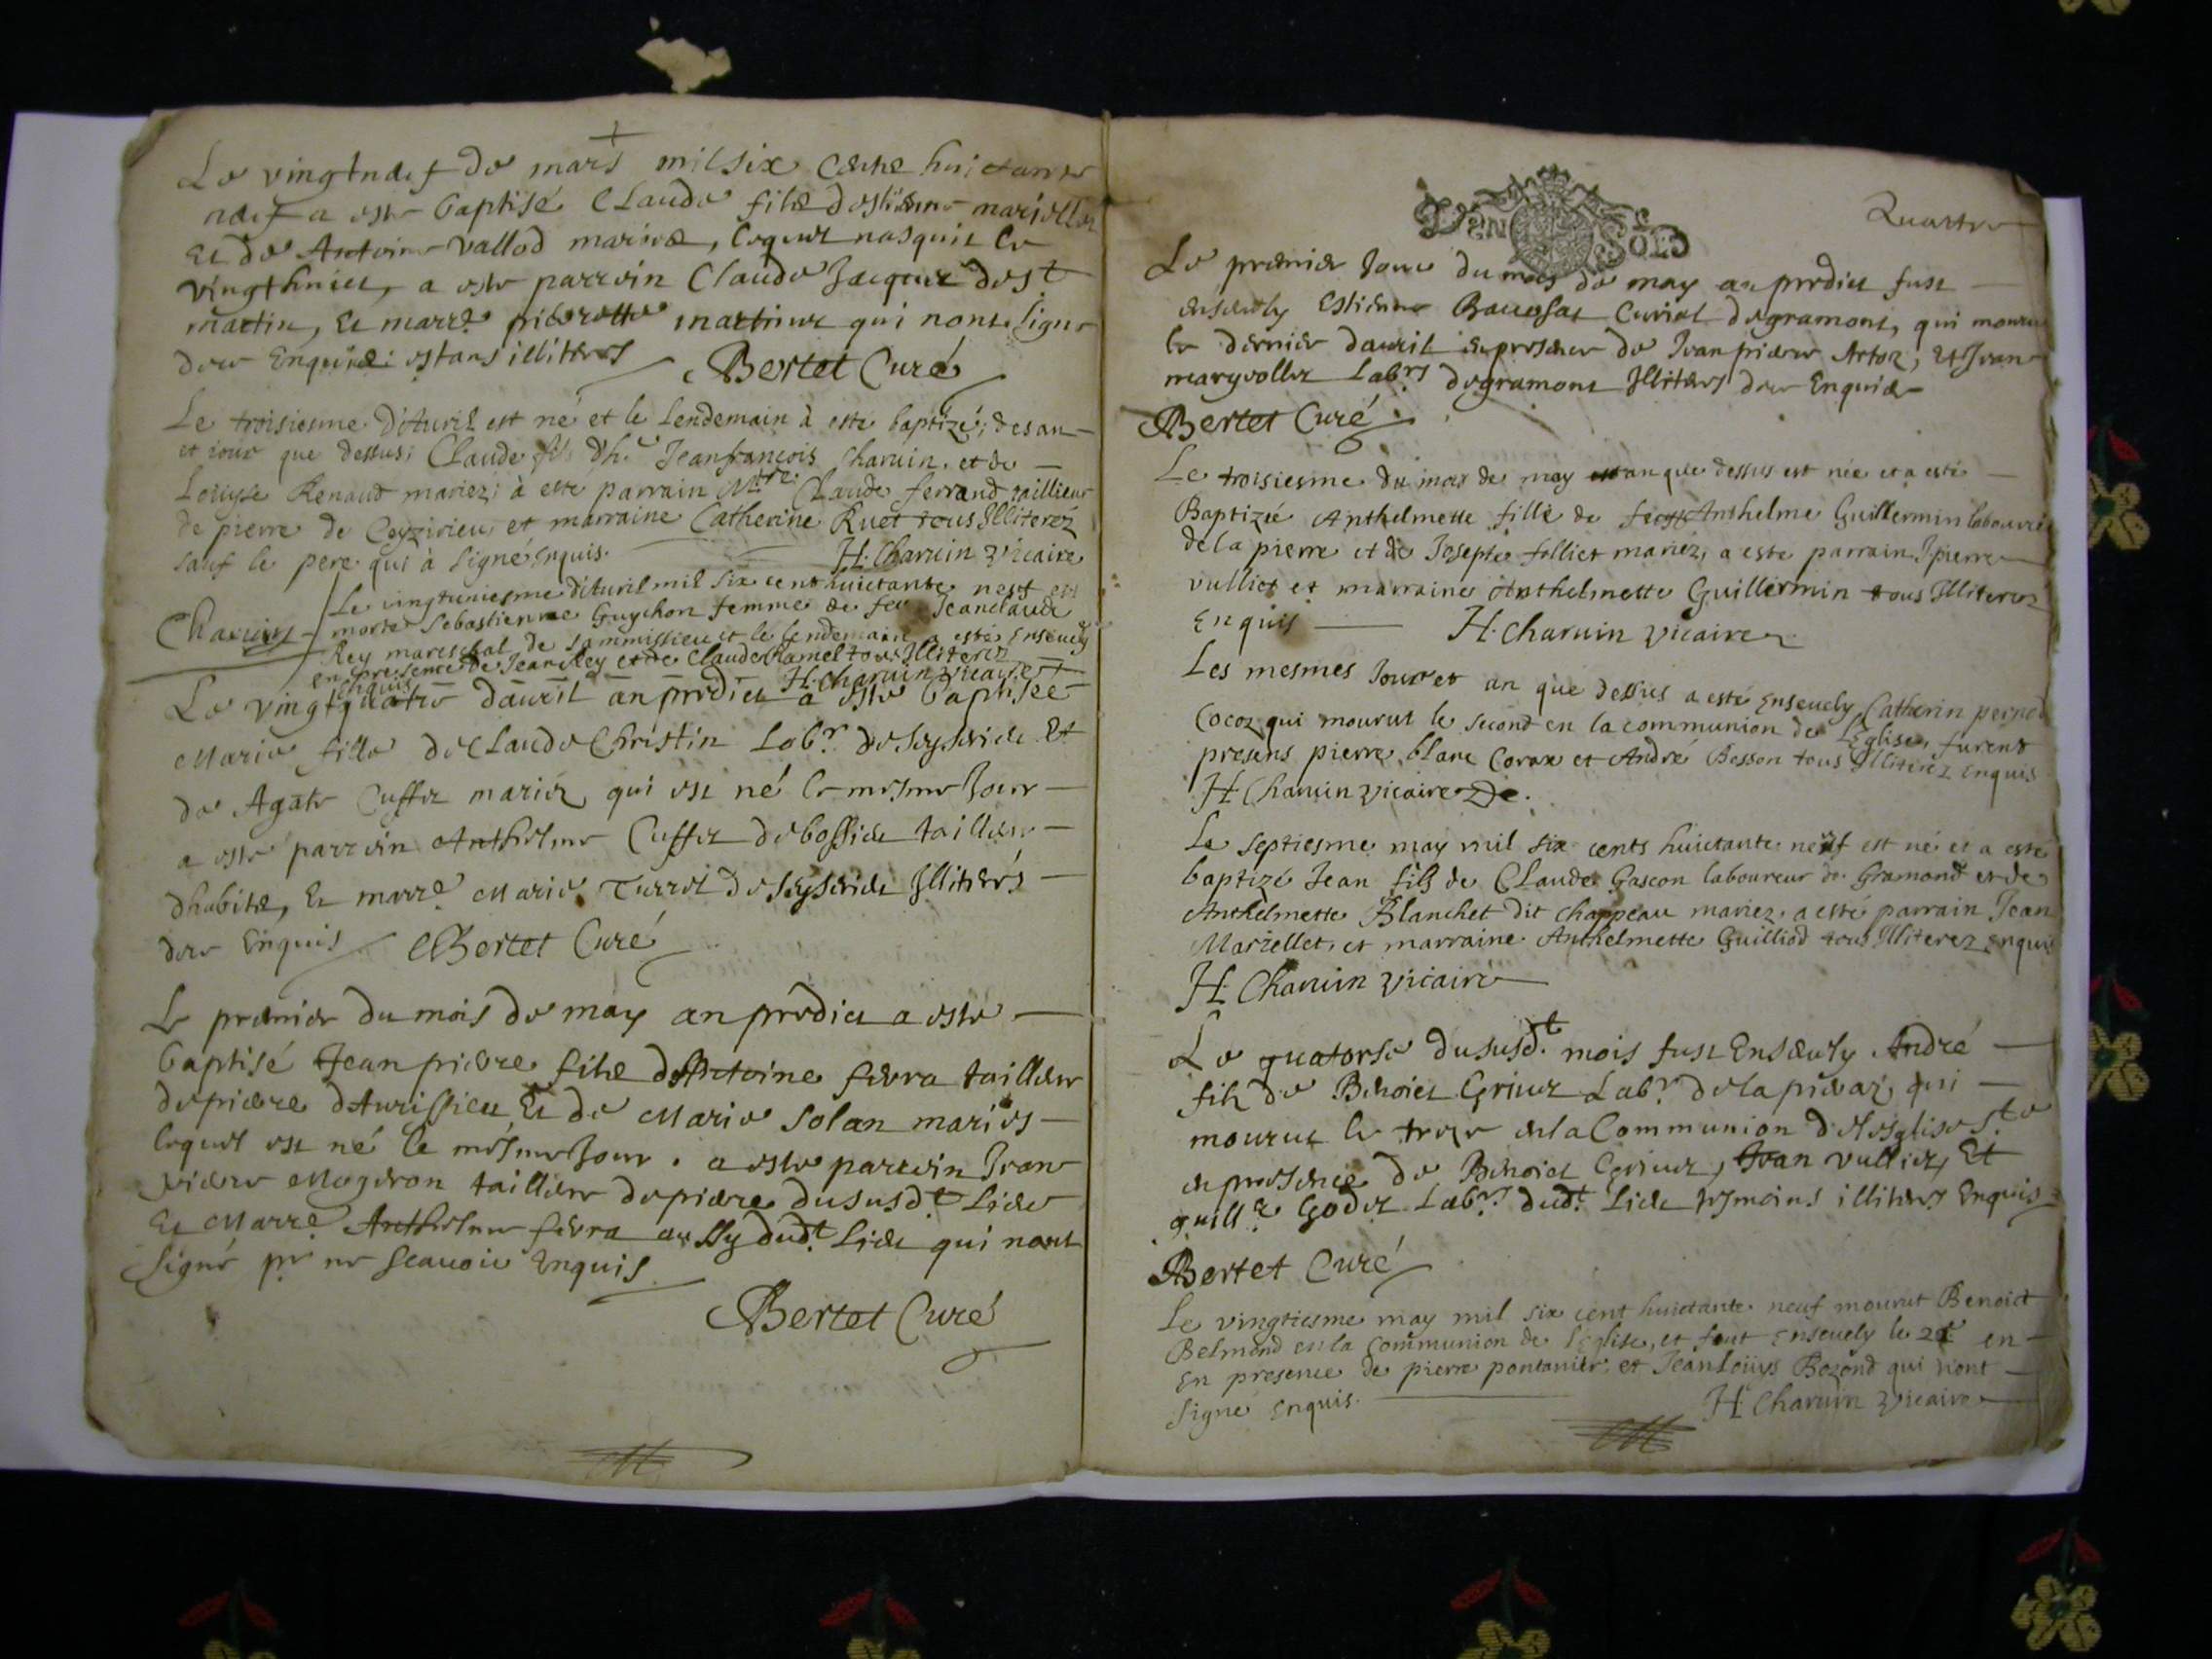 Le vingtneuf de mars mil six cents huictante
neuf a este baptisé Claude filz destienne mariollet
Et de Antoine Vallod mariez, lequel nasquit le
vingthuict, a este parrein Claude Jacquet de St
martin, Et marre pierrette martinet qui nont signe
pour Enquis estans illiterés Bertet Curé
Le troisiesme d'Auril est né et le lendemain à este baptizé, des an
et iour que dessus, Claude fils d'h.e Jeanfrançois Charuin et de
Loüyse Renaud mariez, à este parrain M.tre Claude ferrand taillieur
de pierre de Ceyzirieu et marraine Catherine Ruet tous Illiterez
sauf le pere qui à signé Enquis. H. Charuin vicaire
Charuin
Le vingtuniesme d'Auril mil six cent huictante neuf est
morte Sebastienne Guychon femme de feu Jeanclaude
Rey mareschal de Sammissieu et le lendemain a esté Enseuely
en presence de Jean Rey et de Claude Ramel tous Illiterez
enquis H. Charuin vicaire
Le vingtquatre dauril an predict a este baptisée
Marie fille de Claude Christin Lab.r de et
de Agate Cuffet mariez qui est né le mesme Jour
a este parrein Anthelme Cuffet de bossieu tailleur
dhabitz, Et marr.e Marie Turrel de Illiterés
Enquis Bertet Curé
Le premier du mois de may an predict a este
baptisé Jean pierre filz d'Antoine ferra tailleur
de pierre d'Aurissieu Et de Marie Solan mariés
lequel est né le mesme Jour. a este parrein Jean
pierre Mogeron tailleur de pierre du susd.t Lieu
Et Marr.e Anthelme ferra aussy dud.t Lieu qui nont
signé pr ne scauoir Enquis
Bertet Curé
Quattre
DEN SOLS
Le premier Jour du mois de may an predict fust
enseuely Estienne Curial de gramont, qui mourut
le dernier dauril en presence de Jean pierre Artoz, Et Jean
maryollet Lab.rs de gramont Illiterés Enquis
Bertet Curé
Le troisiesme du mois de may an que dessus est née et a esté
Baptizée Anthelmette fille de Anthelme Guillermin laboureur
de la pierre et de Josepte folliet mariez, a esté parrain pierre
vulliet et marraine Anthelmette Guillermin tous Illiterez
Enquis H. Charuin vicaire
Les mesmes Jour et an que dessus a esté Enseuely Catherin pernet
Cocoz qui mourut le second en la communion de l'Eglise, furent
presens pierre blanc Corax et André Besson tous Illiterez Enquis
H. Charuin vicaire
Le septiesme may mil six cents huictante neuf est né et a esté
baptizé Jean fils de Claude Gascon laboureur de Gramond et de
Anthelmette Blanchet dit chappeau mariez, a esté parrain Jean
Mariellet, et marraine Anthelmette Guilliod tous Illiterez Enquis
H. Charuin vicaire
Le quatorse du susd.t mois fust Enseuely André
filz de Benoict Grinet Lab.r de la pieraz, qui
mourut le treze en la Communion d'Leglise S.te
en presence de Benoict Grinet, Jean vulliet, Et
guill.e Godet Lab.rs dud.t Lieu tesmoins illiterés Enquis
Bertet Curé
Le vingtiesme may mil six cent huictante neuf mourut Benoict
Belmond en la Communion de l'Eglise, et fut Enseuely le 21 en
En presence de pierre pontanier et Jeanloüys Bozond qui n'ont
signé Enquis. H. Charuin vicaire